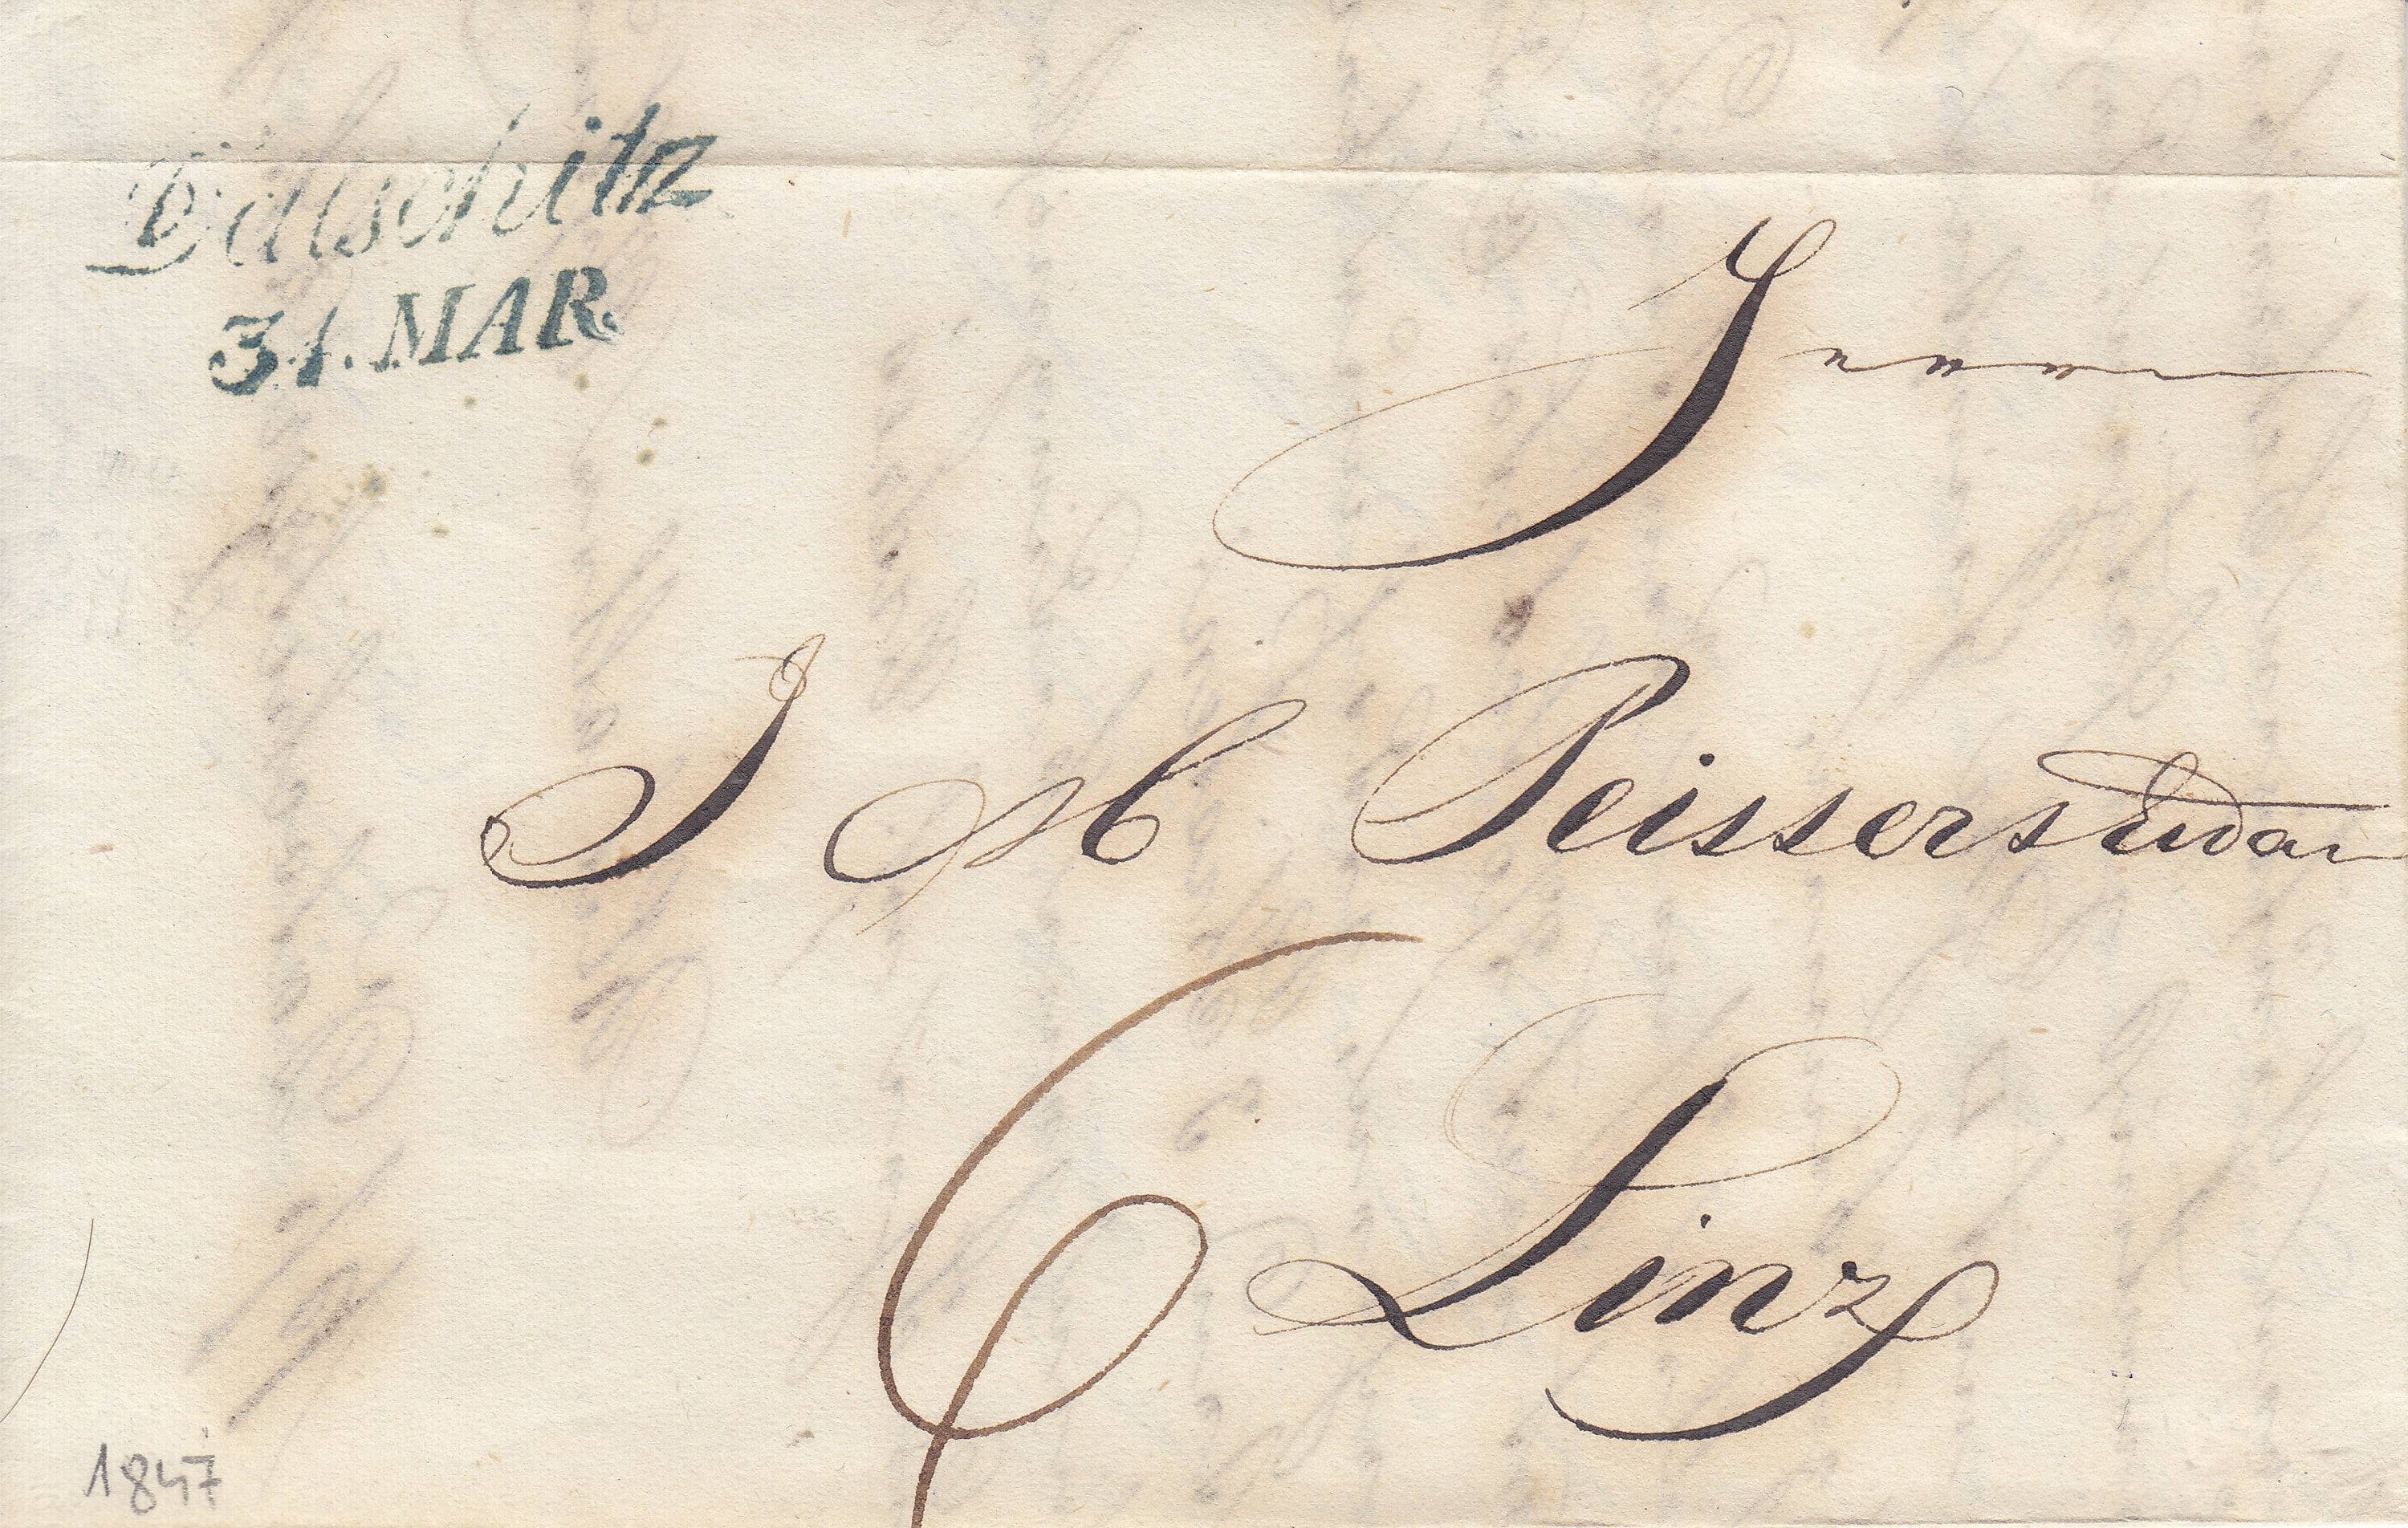 Datschitz
31. MAR.
Herrn
J M Peissersen
Linz
6
1847